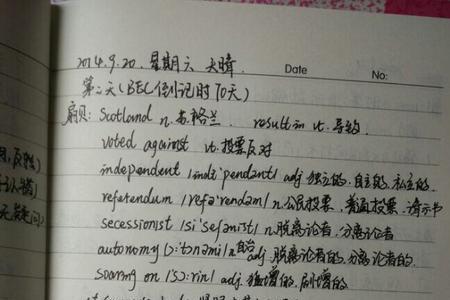 2014.9.20. 星期六 大晴.
Date No:
第二天(BEC倒记时70天)
扇贝: Scotland n.苏格兰. result in vt.导致.
voted against vt.投票反对
independent /indi'pendənt/ adj 独立的.自主的.私立的.
referendum /refə'rendəm/ n.公民投票.普遍投票.请示书
secessionist /si'seʃənist/ n.脱离论者.分离论者
autonomy /ɔ:'tɔnəmi/ n自治 adj.脱离论者的.分离论者的.
soaring on /sɔ:riŋ/ adj.猛增的.剧增的